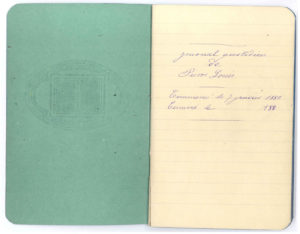 journal quotidien
de
Pierre Louis
Commencé le 7 janvier 188
Terminé le 188